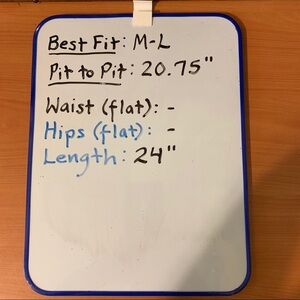 Best Fit: M-L
Pit to Pit: 20.75"
Waist (flat): -
Hips (flat): -
Length: 24"